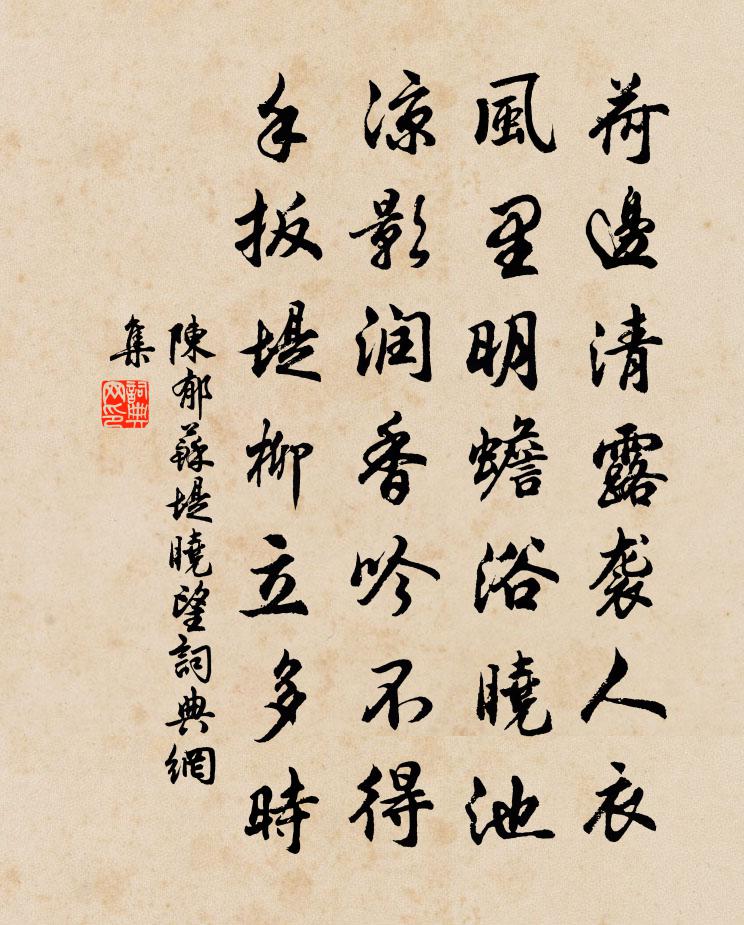 荷邊清露袭人衣
風里明蟾浴曉池
凉影润香吟不得
手扳堤柳立多時
陳郁蘇堤曉望詞典網
集
詞典網印